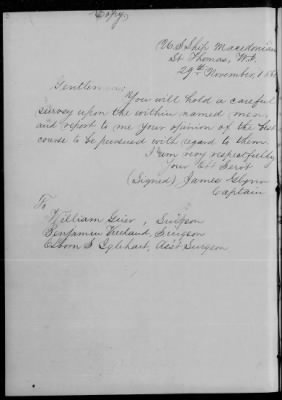 Copy.
U.S. Ship Macedonian
St Thomas, W.I.
29th November 18
Gentlemen:
You will hold a careful
survey upon the within named men,
and report to me your opinion of the best
course to be pursued with regard to them.
I am very respectfully
Your obt Servt
(Signed) James Glynn
Captain
To
William Grier, Surgeon
Benjamin Vreeland, Surgeon
Osborn S Iglehart, Asst Surgeon